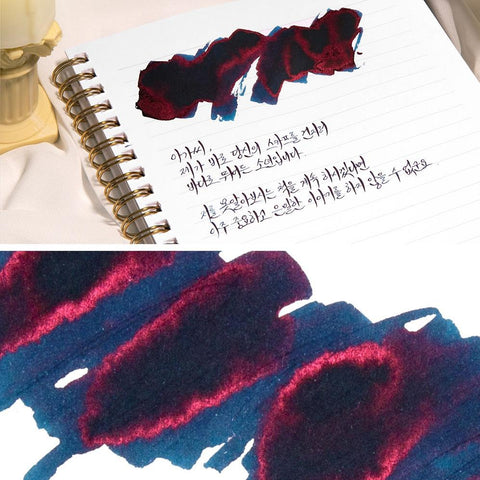 아가씨,
제가 바로 당신의 스카프를 건네러
바다로 뛰어든 소년입니다.
저를 못알아보시는 척을 계속 하시겠다면
아주 중요하고 은밀한 이야기를 하지 않을 수 없군요